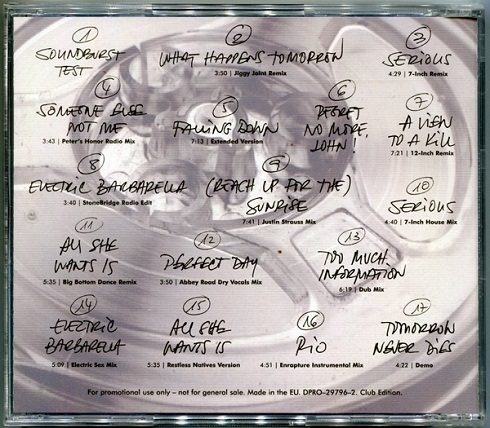 1 2 3
SOUNDBURST WHAT HAPPENS TOMORROW SERIOUS
TEST 3:50 | Jiggy Joint Remix 4:29 | 7-Inch Remix
4 5 6 7
SOMEONE ELSE FALLING DOWN REGRET A VIEW
NOT ME NO MORE, TO A KILL
3:43 | Peter's Honor Radio Mix 7:13 | Extended Version JOHN! 7:21 | 12-Inch Remix
8 9 10
ELECTRIC BARBARELLA (REACH UP FOR THE) SERIOUS
3:40 | StoneBridge Radio Edit SUNRISE 4:40 | 7-Inch House Mix
7:41 | Justin Strauss Mix
11 12 13
ALL SHE PERFECT DAY TOO MUCH
WANTS IS 3:50 | Abbey Road Dry Vocals Mix INFORMATION
5:35 | Big Bottom Dance Remix 6:19 | Dub Mix
14 15 16 17
ELECTRIC ALL SHE RIO TOMORROW
BARBARELLA WANTS IS NEVER DIES
5:09 | Electric Sex Mix 5:35 | Restless Natives Version 4:51 | Enrapture Instrumental Mix 4:22 | Demo
For promotional use only – not for general sale. Made in the EU. DPRO-29796-2. Club Edition.